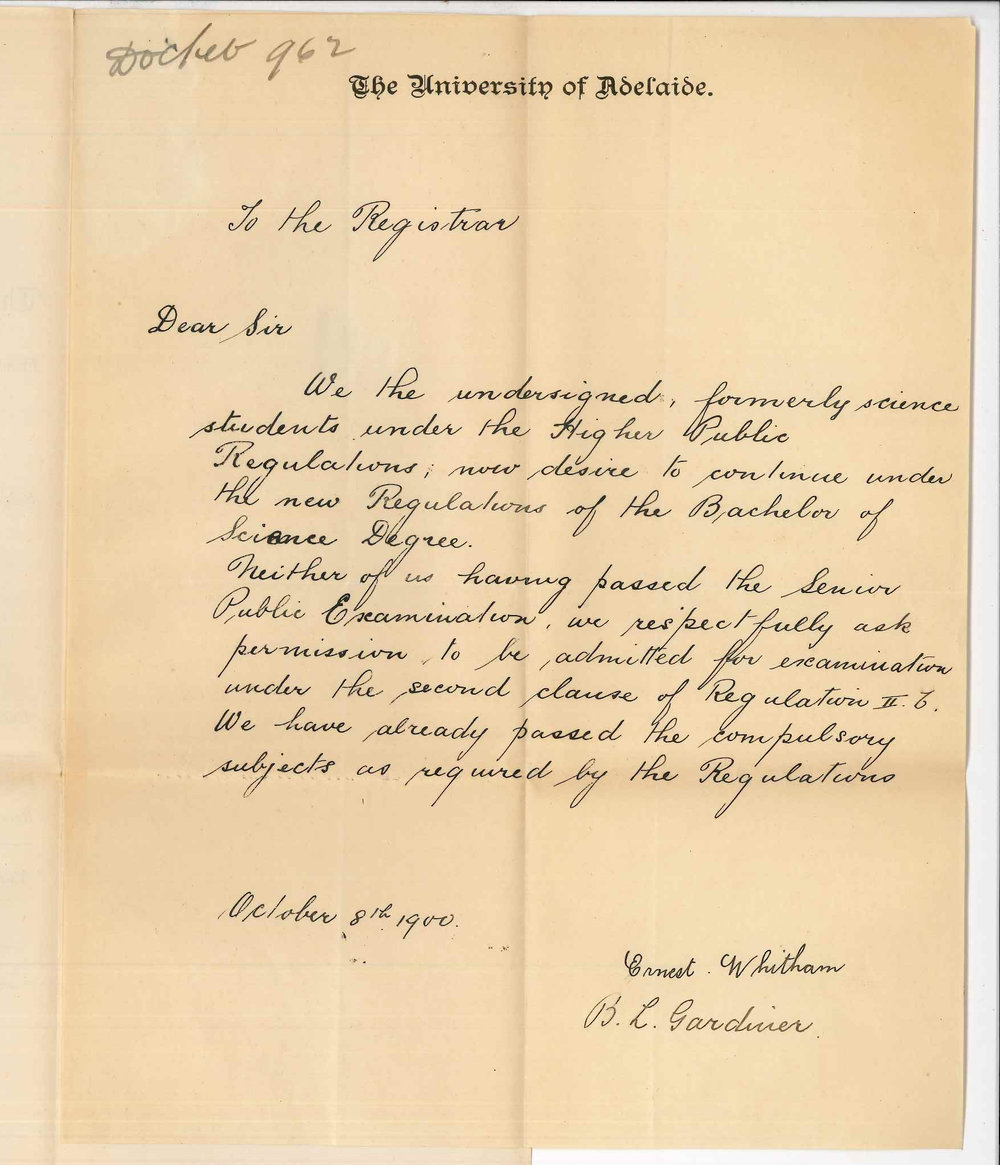 Docket 962
The University of Adelaide.
To the Registrar
Dear Sir
We the undersigned, formerly science
students under the Higher Public
Regulations, now desire to continue under
the new Regulations of the Bachelor of
Science Degree.
Neither of us having passed the Senior
Public Examination, we respectfully ask
permission to be admitted for examination
under the second clause of Regulation II. 6.
We have already passed the compulsory
subjects as required by the Regulations
October 8th 1900.
Ernest Whitham
B. L. Gardiner